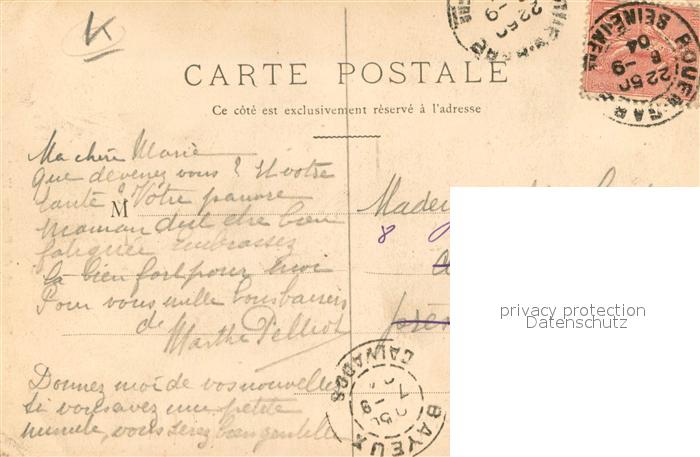 K
CARTE POSTALE
Ce côté est exclusivement réservé à l'adresse
ROUEN-GARE
SEINE-INFRE
2250
6-9
04
Ma chère Marie
que devenez vous? Et votre
santé? Votre pauvre
M
Maman doit être bien
fatiguée Embrassez
la bien fort pour moi
Pour vous mille bons baisers
de
Marthe Pelliot
Donnez moi de vos nouvelles
si vous avez une petite
minute, vous serez bien gentille
8
BAYEUX
CALVADOS
privacy protection
Datenschutz